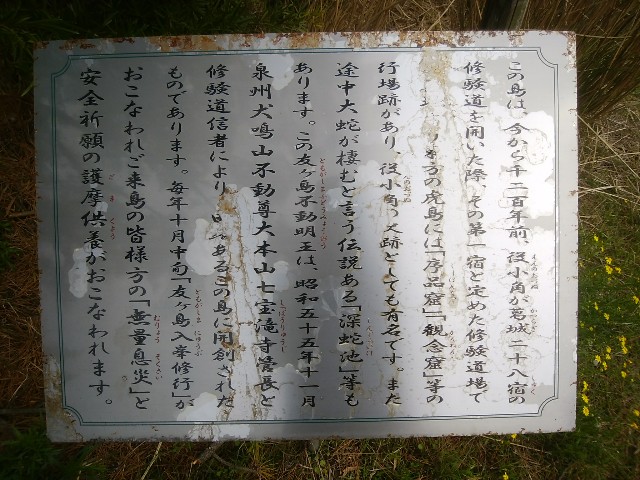 この島は、今から千二百年前、役小角が葛城二十八宿の
修験道を開いた際、その第一宿と定めた修験道場で
方の虎島には「序品窟」「観念窟」等の
行場跡があり、役小角の 跡としても有名です。また
途中大蛇が棲むと言う伝説ある「深蛇池」等も
あります。この友ヶ島不動明王は、昭和五十五年十一月
泉州犬鳴山不動尊大本山七宝滝寺管長と
修験道信者により あるこの島に開創された
ものであります。毎年十月中旬「友ヶ島入峯修行」が
おこなわれご来島の皆様方の「無量息災」と
安全祈願の護摩供養がおこなわれます。